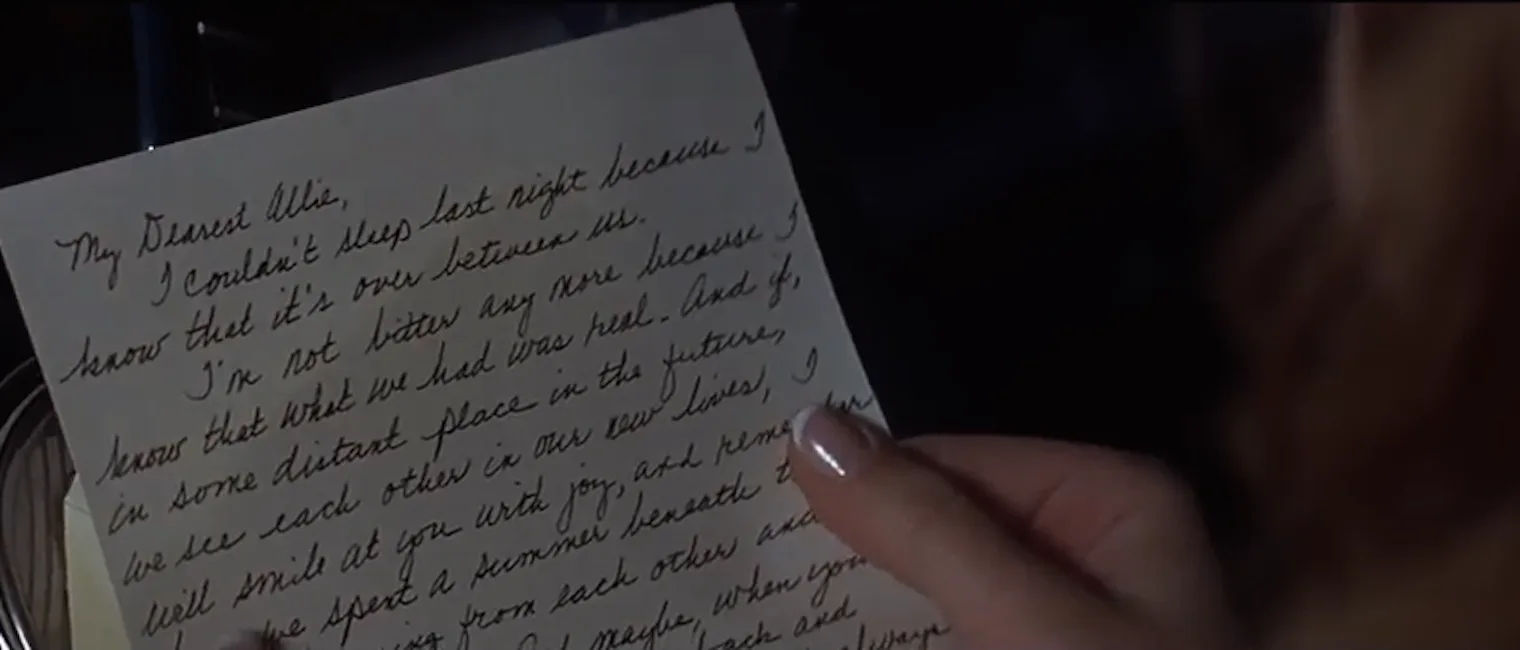 My Dearest Allie,
I couldn't sleep last night because I
know that it's over between us.
I'm not bitter any more because I
know that what we had was real. And if,
in some distant place in the future,
we see each other in our new lives, I
we'll smile at you with joy, and
we spent a summer beneath
from each other and
maybe, when you
back and
always